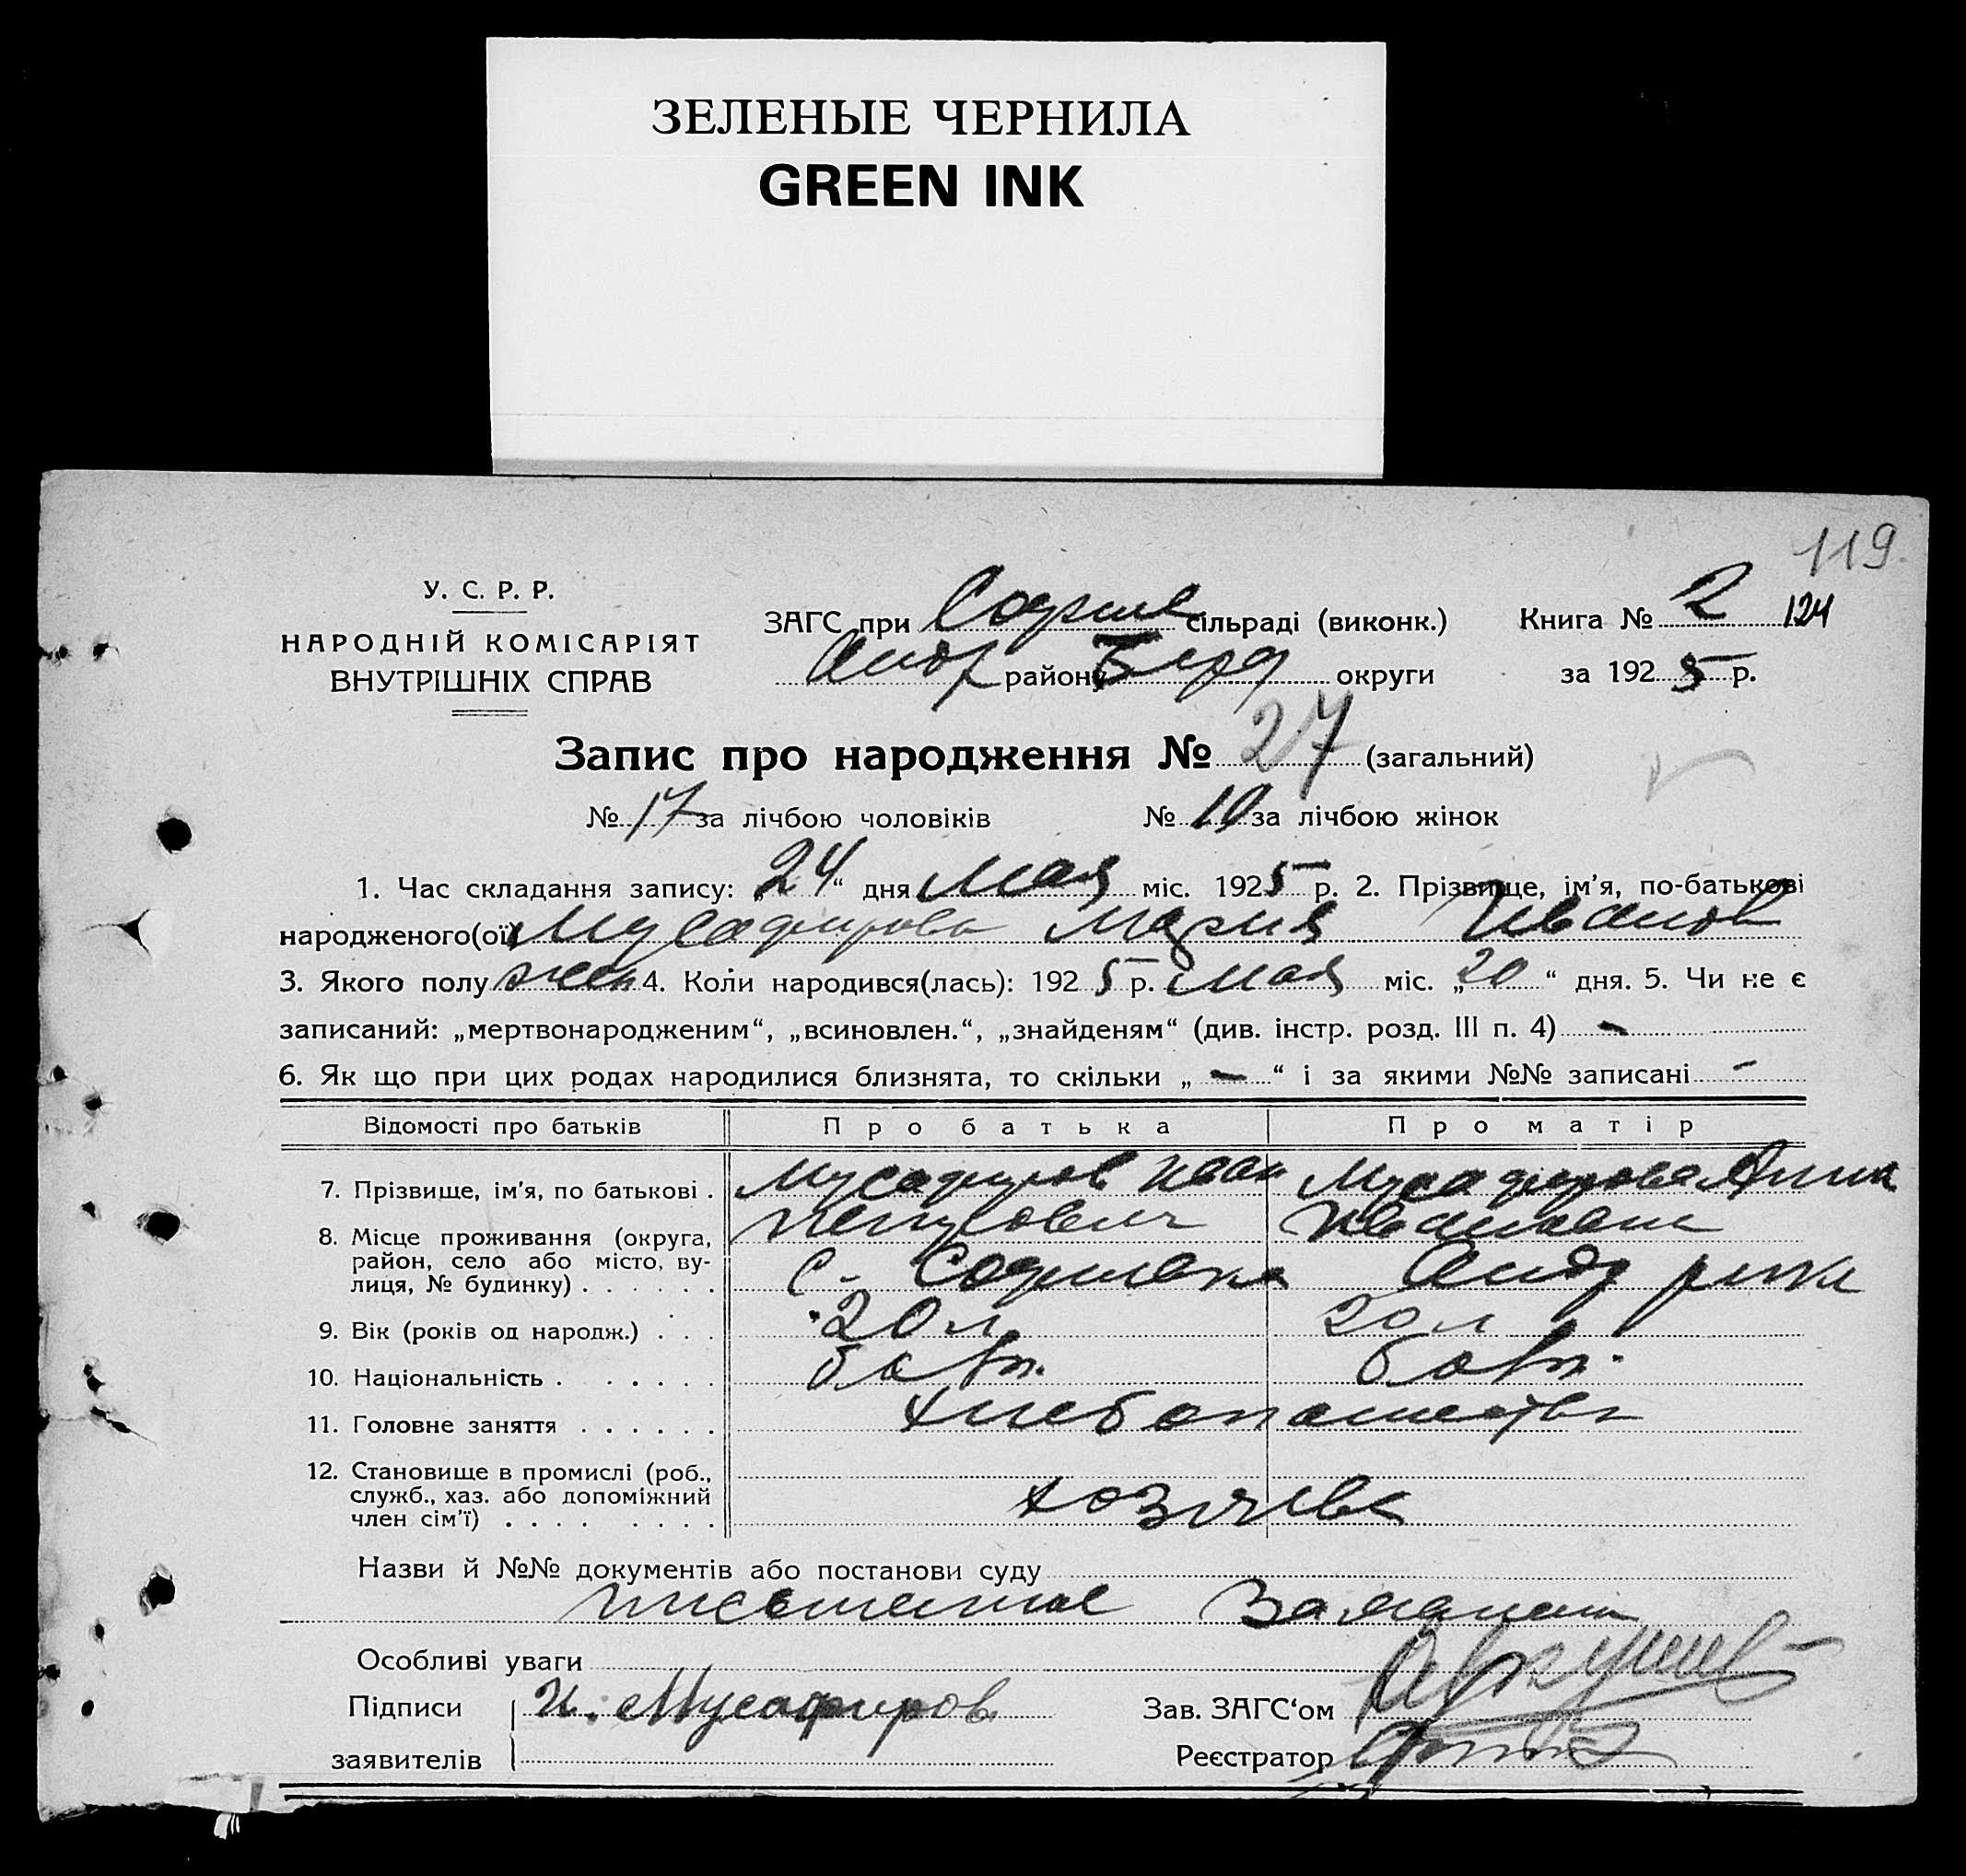 ЗЕЛЕНЫЕ ЧЕРНИЛА
GREEN INK
119.
У. С. Р. Р.
НАРОДНІЙ КОМІСАРІЯТ
ВНУТРІШНІХ СПРАВ
ЗАГС при Софие сільраді (виконк.)
Андр району Берд округи
Книга № 2 124
за 1925 р.
Запис про народження № 27 (загальний)
№ 17 за лічбою чоловіків № 10 за лічбою жінок
1. Час складання запису: „24“ дня Мая міс. 1925 р. 2. Прізвище, ім'я, по-батькові
народженого(ої) Мусафирова Мария Иванов
3. Якого полу жен 4. Коли народився(лась): 1925 р. Мая міс. „20“ дня. 5. Чи не є
записаний: „мертвонародженим“, „всиновлен.“, „знайденям“ (див. інстр. розд. III п. 4) -
6. Як що при цих родах народилися близнята, то скільки „ - “ і за якими №№ записані -
Відомості про батьків Про батька Про матір
7. Прізвище, ім'я, по батькові . Мусафиров Иван Мусафирова Анна
8. Місце проживання (округа,
район, село або місто, ву-
лиця, № будинку) . . . . . . с. Софиевка Андр
9. Вік (років од народж.) . . . 20 л 20 л
10. Національність . . . . . . болг. болг.
11. Головне заняття . . . . . . Хлебопашество
12. Становище в промислі (роб.,
служб., хаз. або допоміжний
член сім'ї) . . . . . . . . хозяева
Назви й №№ документів або постанови суду
Особливі уваги
Підписи И. Мусафиров Зав. ЗАГС‘ом
заявителів Реєстратор